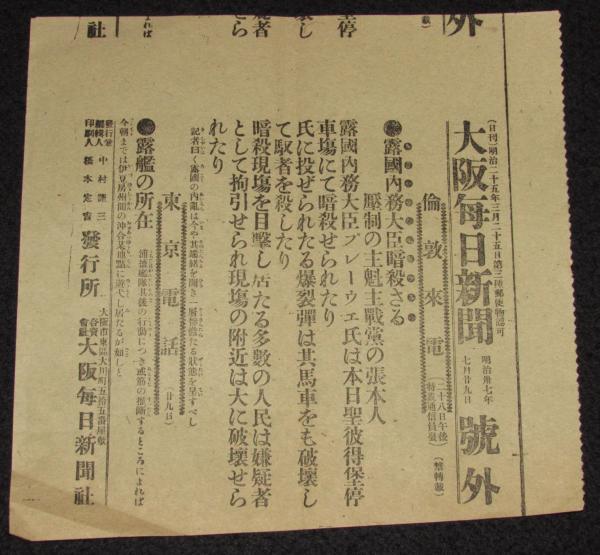 號外
(日刊)明治二十五年三月二十五日第三種郵便物認可
大阪毎日新聞
明治卅七年
七月廿九日
號外
倫敦來電
(二十八日午後
特置通信員發)
(禁轉載)
●露國內務大臣暗殺さる
壓制の主魁主戰黨の張本人
露國內務大臣プレーウェ氏は本日聖彼得堡停
車塲にて暗殺せられたり
氏に投ぜられたる爆裂彈は其馬車をも破壞し
て馭者を殺したり
暗殺現塲を目擊し居たる多數の人民は嫌疑者
として拘引せられ現塲の附近は大に破壞せら
れたり
記者曰く露國の內亂は今や其端緒を開き一層慘憺たる狀態を呈すべし
東京電話
(廿九日)
●露艦の所在
浦鹽艦隊其後の行動につき或筋の推斷するところによれば
今朝までは伊豆房州間の沖合某地點に遊弋し居たるが如しと
發行兼
編輯人 中村謙三
印刷人 橋本定吉
發行所
大阪市東區大川町五拾五番屋敷
合資
會社
大阪每日新聞社